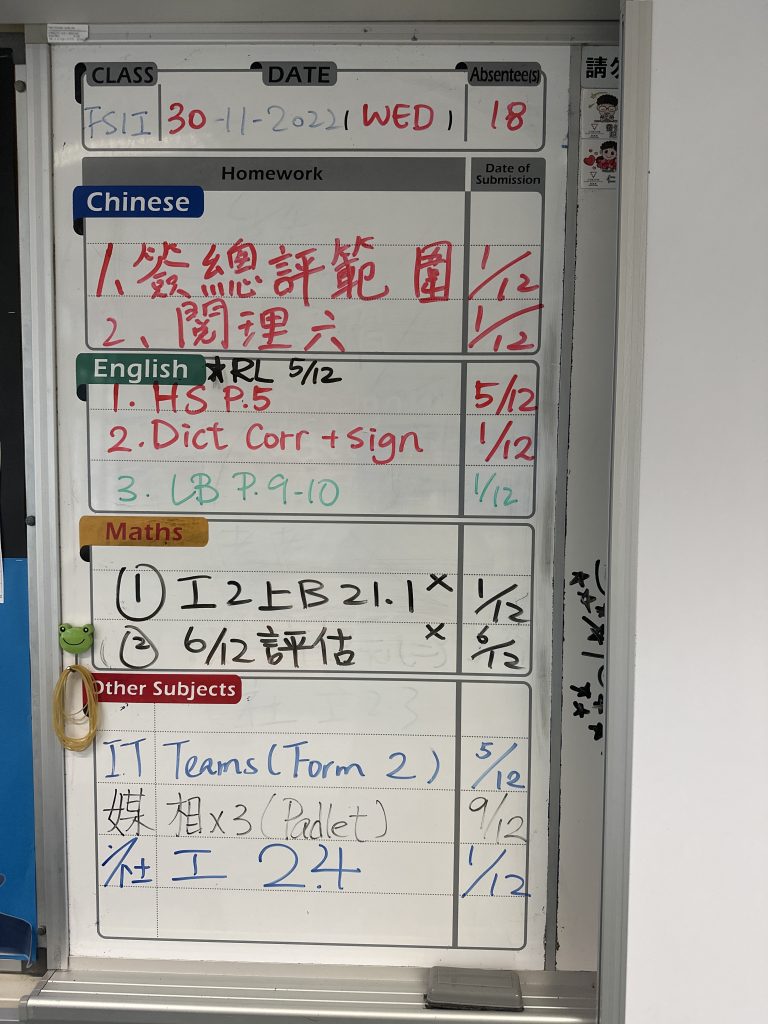 CLASS DATE Absentee(s)
30-11-2022 (WED) 18
Homework Date of Submission
Chinese
1、簽總評範圍 1/12
2、閱理六 1/12
English ★RL 5/12
1. HS P.5 5/12
2. Dict Corr + sign 1/12
3. LB P.9-10 1/12
Maths
① 工2上B 21.1 × 1/12
② 6/12 評估 × 6/12
Other Subjects
IT Teams (Form 2) 5/12
媒 相x3 (Padlet) 9/12
社 工 2.4 1/12
請勿